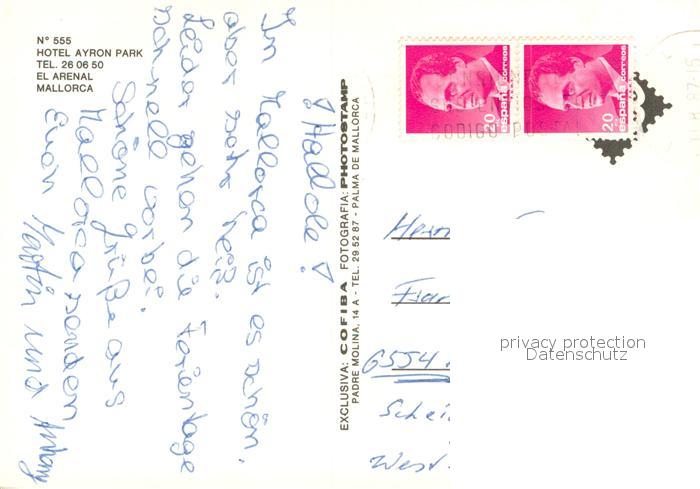 N° 555
HOTEL AYRON PARK
TEL. 26 06 50
EL ARENAL
MALLORCA
! Hallole !
In Mallorca ist es schön.
aber sehr heiß.
Leider gehen die Ferientage
schnell vorbei.
Schöne Grüße aus
Mallorca senden
Euch Martin und
EXCLUSIVA: COFIBA FOTOGRAFIA: PHOTOSTAMP
PADRE MOLINA, 14 A - TEL. 29 52 87 - PALMA DE MALLORCA
20 españa correos
20 españa correos
CODIGO POSTAL
6554
West
privacy protection
Datenschutz